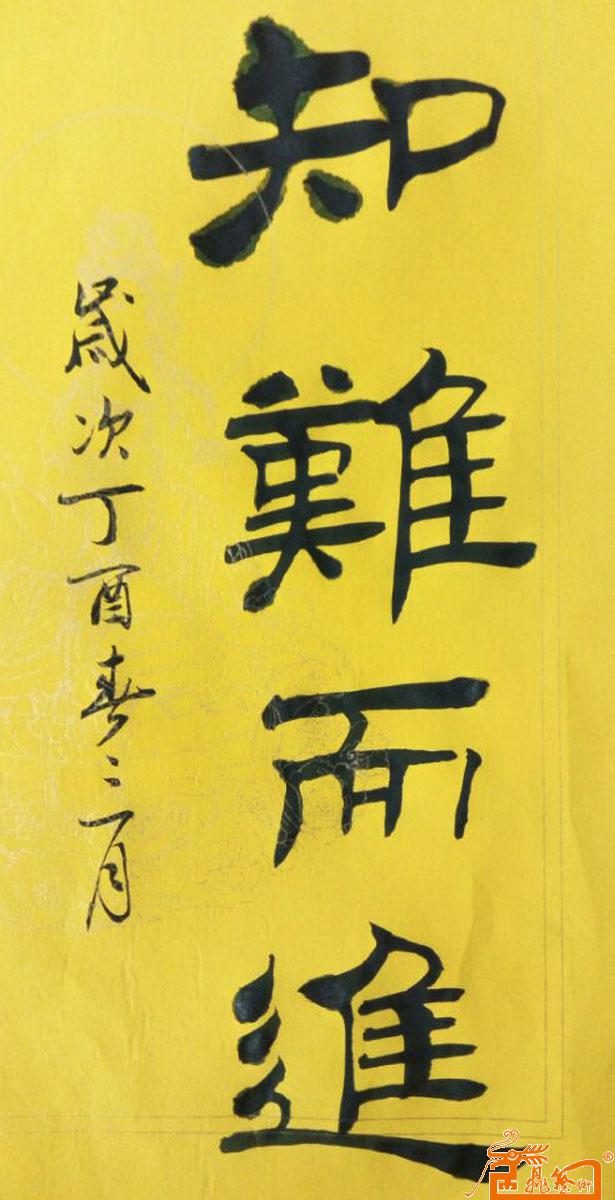 知難而進
歲次丁酉春三月